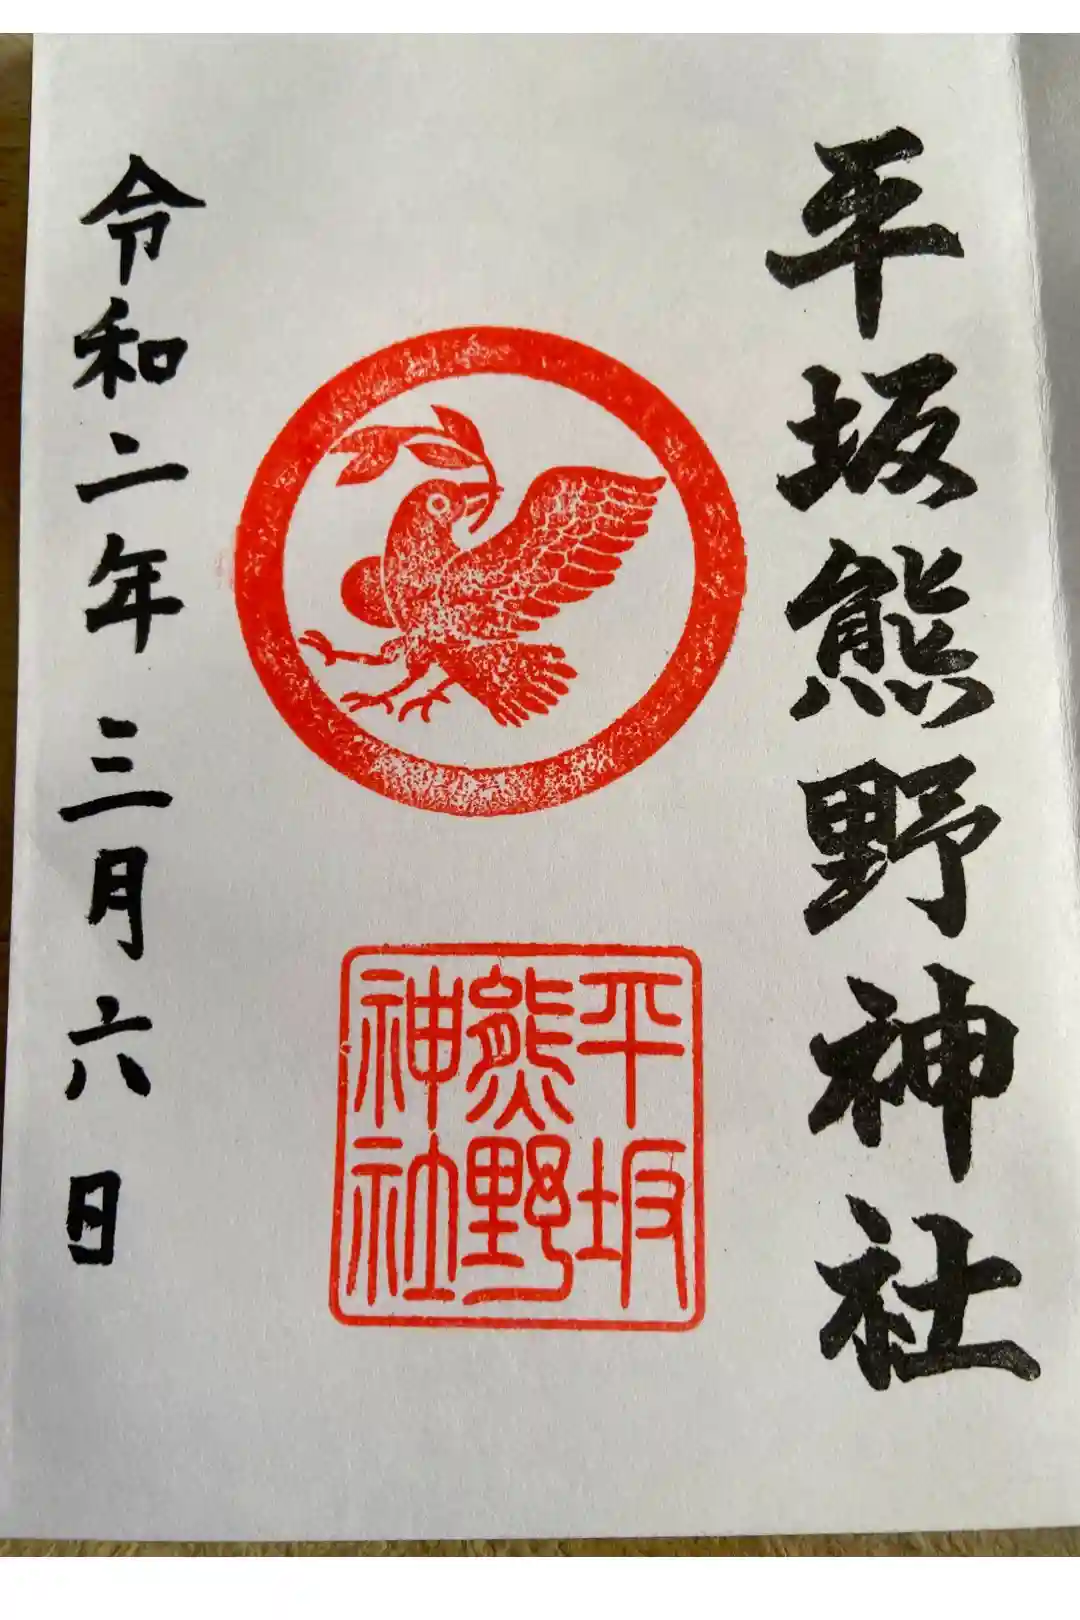 平坂熊野神社
平坂
熊野
神社
令和二年三月六日